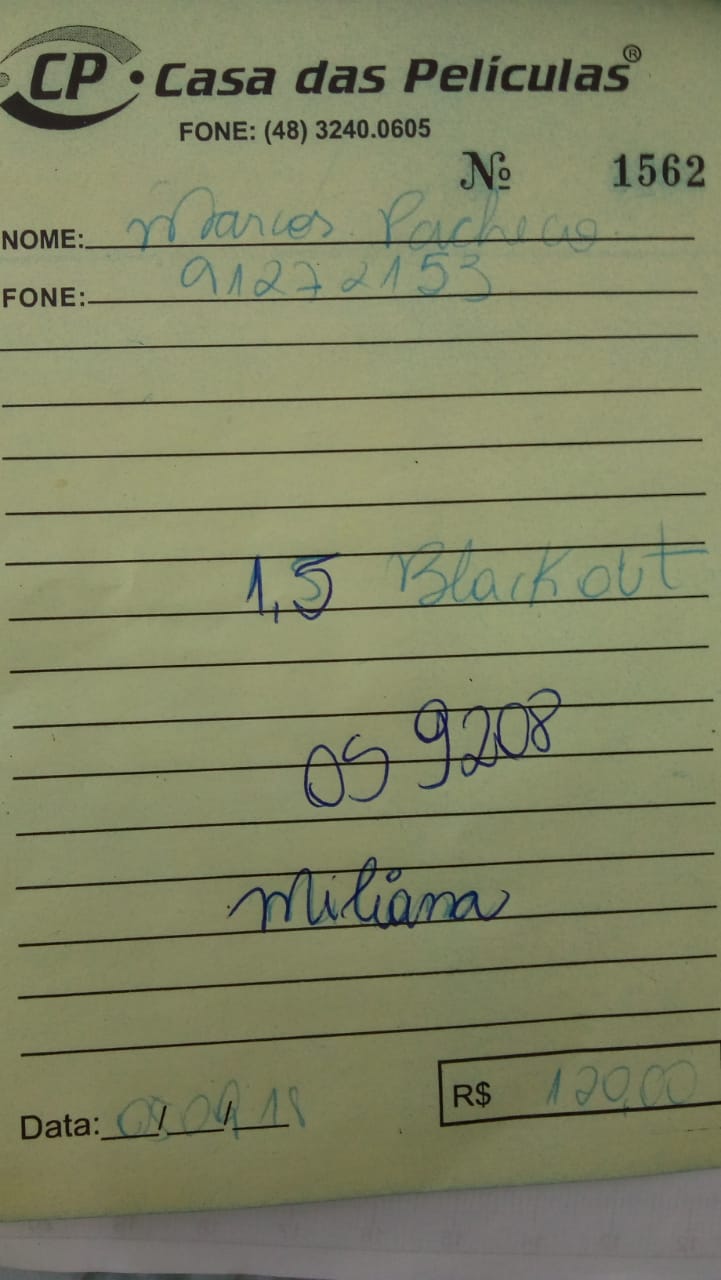 CP • Casa das Películas®
FONE: (48) 3240.0605
Nº 1562
NOME: Marcos Pacheco
FONE: 91272153
1,5 Blackout
OS 9208
Miliana
Data: / /18
R$ 120,00